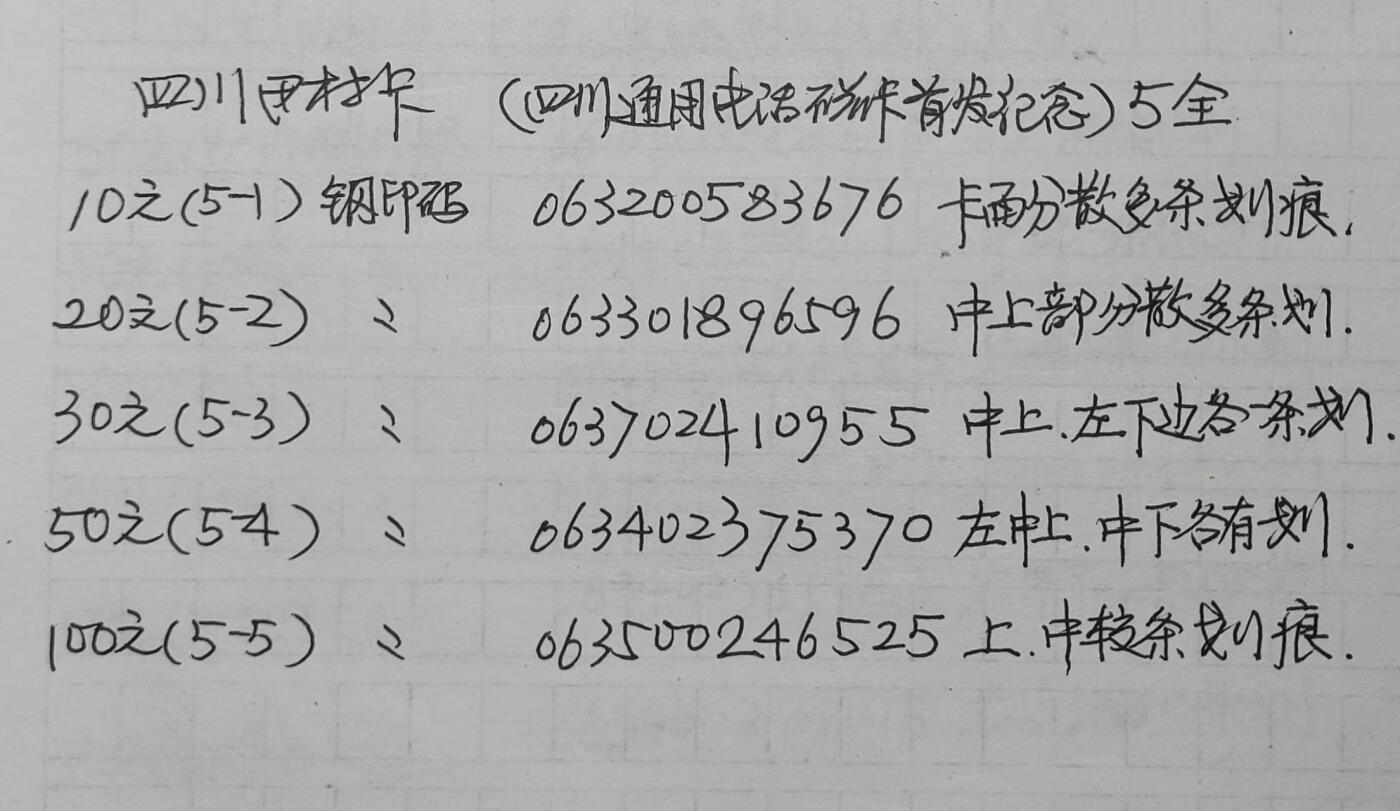 四川田村卡 (四川通用电话磁卡首发纪念)5全
10元(5-1) 钢印码 063200583676 卡面分散多条划痕.
20元(5-2) 〃 063301896596 中上部分散多条划.
30元(5-3) 〃 063702410955 中上.左下边各一条划.
50元(5-4) 〃 063402375370 左中上.中下各有划.
100元(5-5) 〃 063500246525 上.中较条划痕.